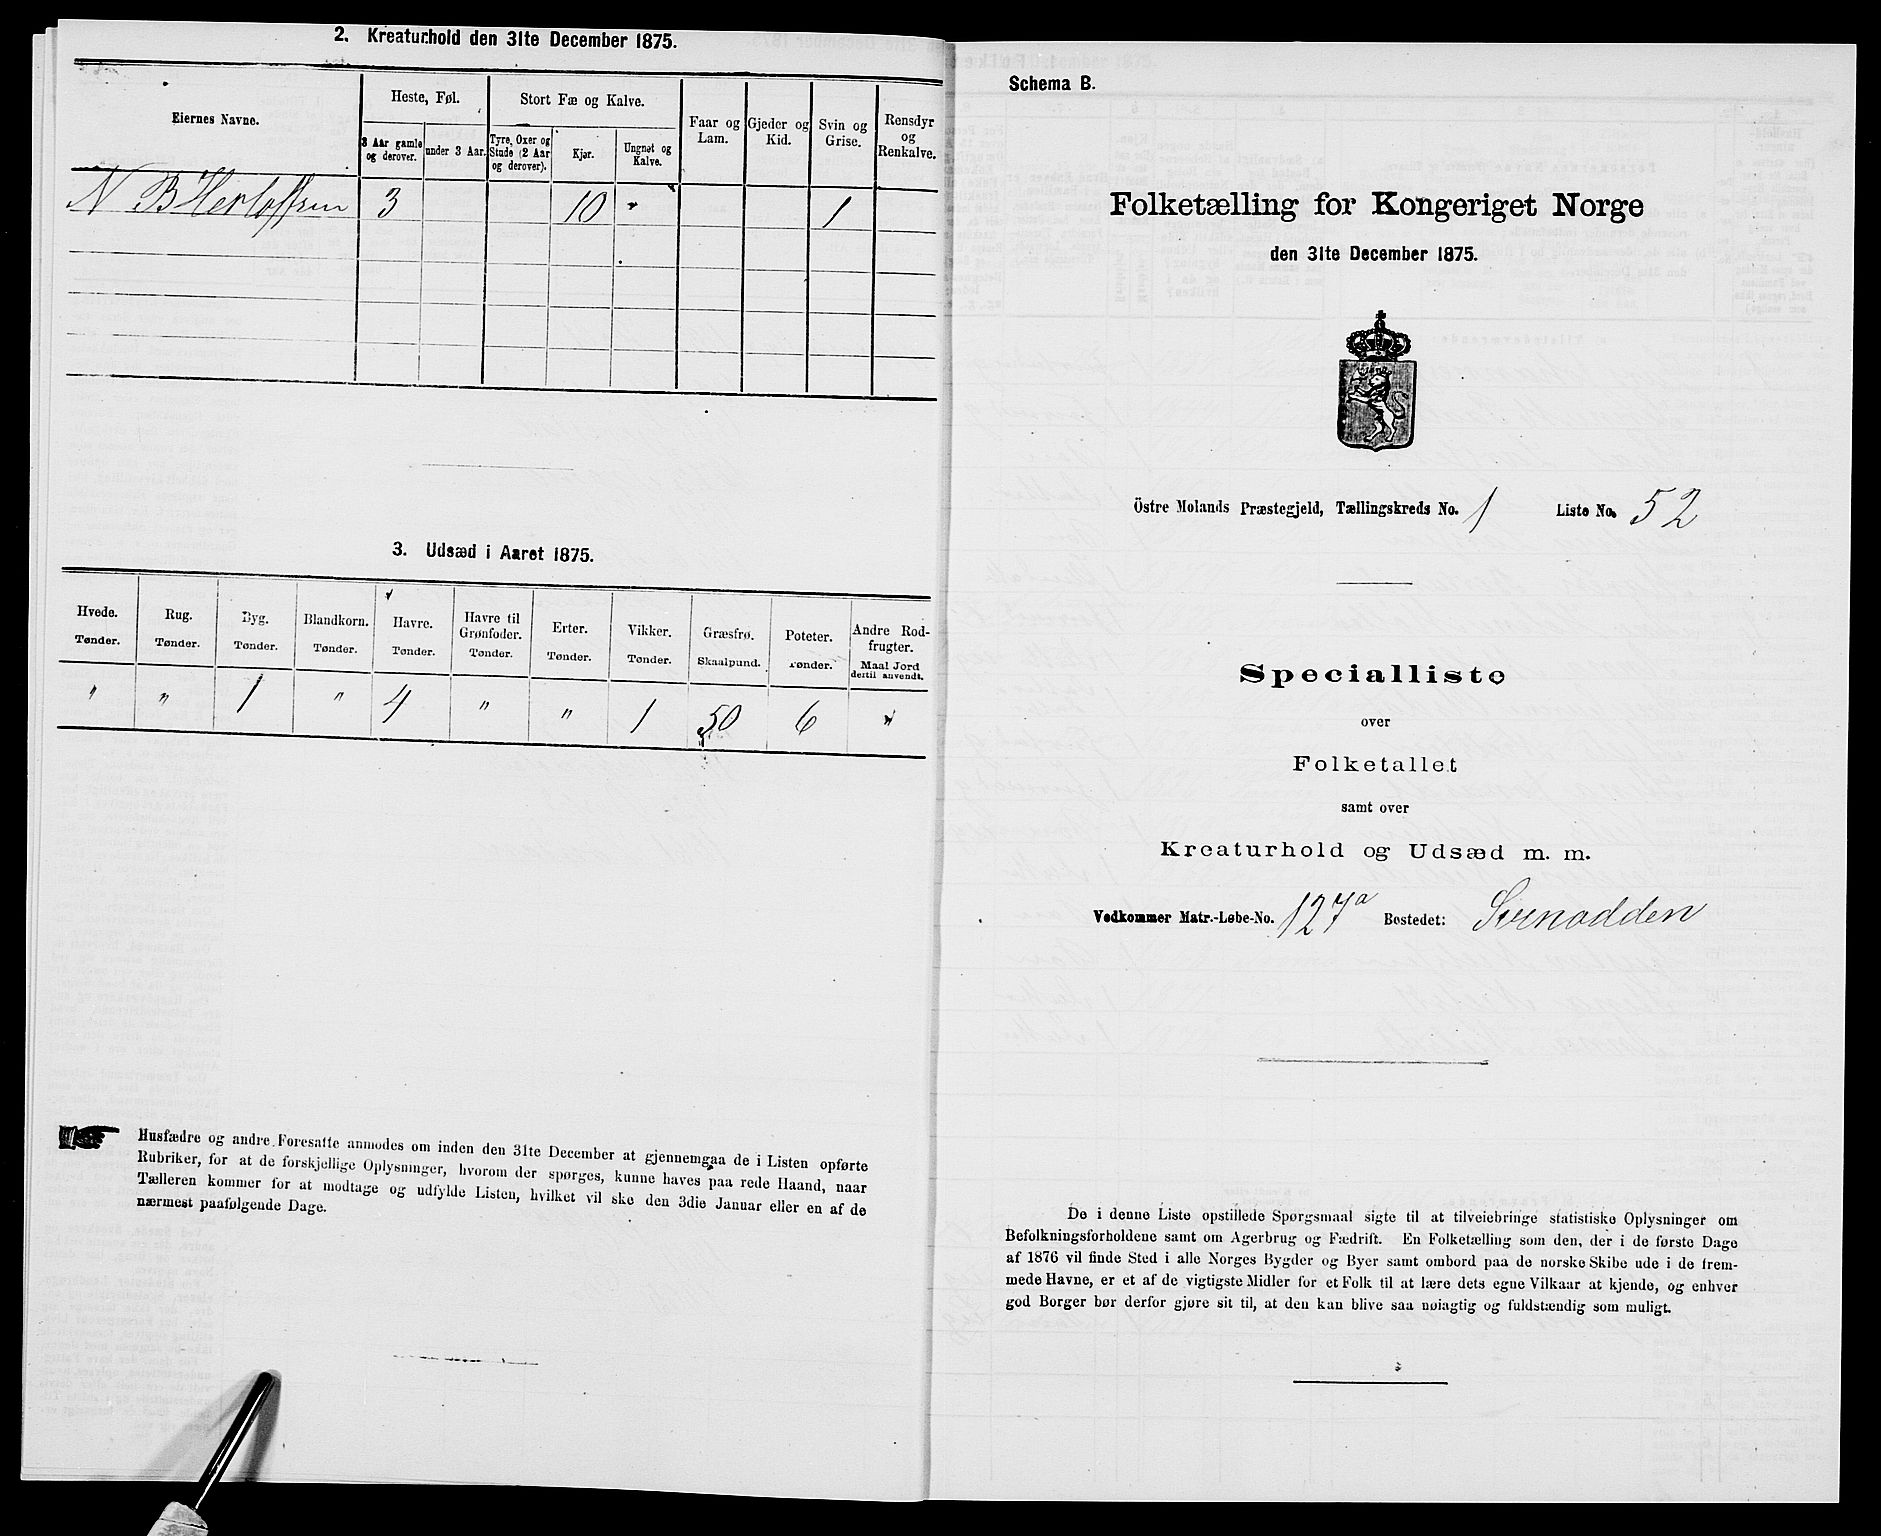 2. Kreaturhold den 31te December 1875.
Eiernes Navne.
Heste, Føl.
Stort Fæ og Kalve.
Faar og Lam.
Gjeder og Kid.
Svin og Grise.
Rensdyr og Renkalve.
3 Aar gamle og derover.
under 3 Aar.
Tyre, Oxer og Stude (2 Aar og derover).
Kjør.
Ungnøt og Kalve.
N B Herlofsen 3 10 " 1
3. Udsæd i Aaret 1875.
Hvede. Rug. Byg. Blandkorn. Havre. Havre til Grønfoder. Erter. Vikker. Græsfrø. Poteter. Andre Rodfrugter.
Tønder. Tønder. Tønder. Tønder. Tønder. Tønder. Tønder. Tønder. Skaalpund. Tønder. Maal Jord dertil anvendt.
" " 1 " 4 " " 1 50 6 "
Husfædre og andre Foresatte anmodes om inden den 31te December at gjennemgaa de i Listen opførte
Rubriker, for at de forskjellige Oplysninger, hvorom der spørges, kunne haves paa rede Haand, naar
Tælleren kommer for at modtage og udfylde Listen, hvilket vil ske den 3die Januar eller en af de
nærmest paafølgende Dage.
Schema B.
Folketælling for Kongeriget Norge
den 31te December 1875.
Östre Molands Præstegjeld, Tællingskreds No. 1 Liste No. 52
Specialliste
over
Folketallet
samt over
Kreaturhold og Udsæd m. m.
Vedkommer Matr.-Løbe-No. 127a Bostedet:
De i denne Liste opstillede Spørgsmaal sigte til at tilveiebringe statistiske Oplysninger om
Befolkningsforholdene samt om Agerbrug og Fædrift. En Folketælling som den, der i de første Dage
af 1876 vil finde Sted i alle Norges Bygder og Byer samt ombord paa de norske Skibe ude i de frem-
mede Havne, er et af de vigtigste Midler for et Folk til at lære dets egne Vilkaar at kjende, og enhver
god Borger bør derfor gjøre sit til, at den kan blive saa nøiagtig og fuldstændig som muligt.